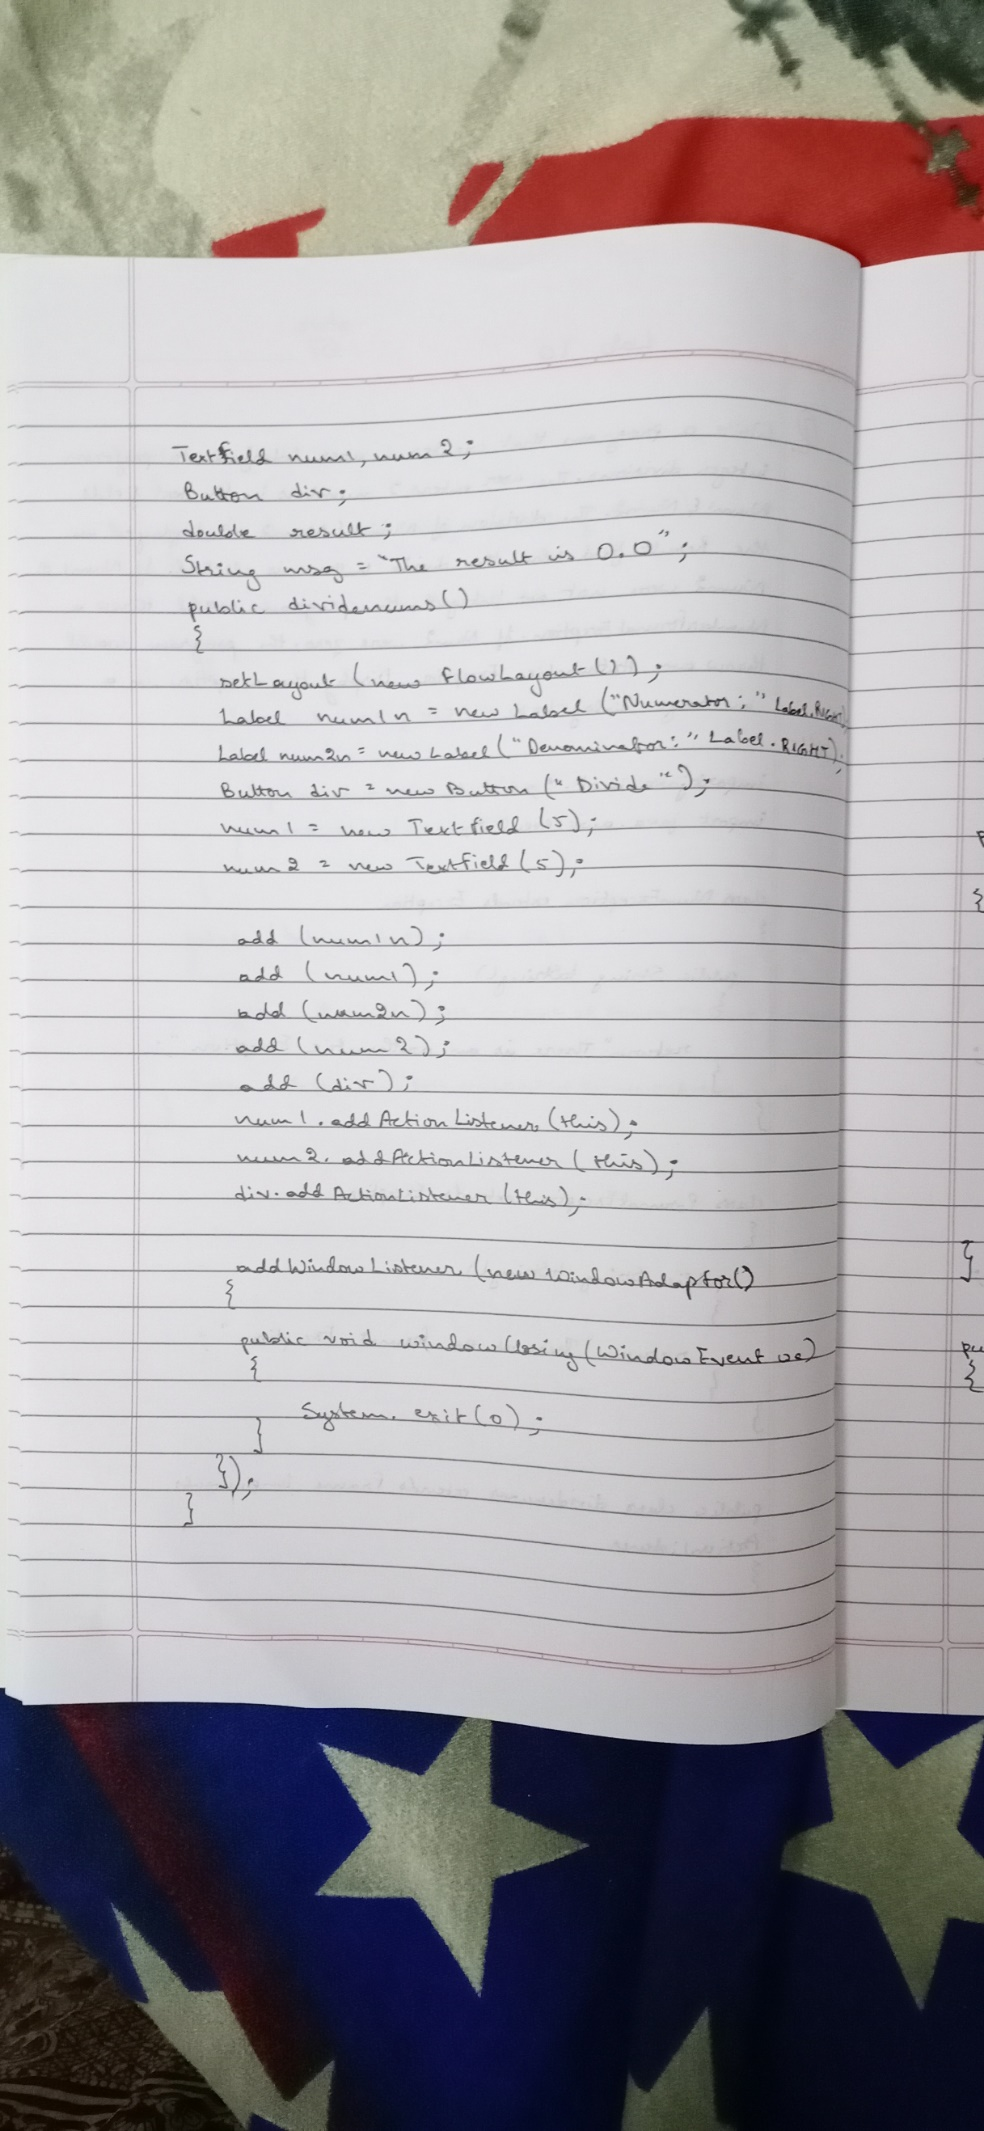 Textfield num1, num2;
Button div;
double result;
String msg = "The result is 0.0";
public dividenums()
{
setLayout (new flowLayout());
Label num1n = new Label ("Numerator:" Label.RIGHT)
Label num2n = new Label ("Denominator:" Label.RIGHT);
Button div = new Button ("Divide");
num1 = new Textfield (5);
num2 = new Textfield (5);
add (num1n);
add (num1);
add (num2n);
add (num2);
add (div);
num1.addActionListener (this);
num2.addActionListener (this);
div.addActionListener (this);
addWindowListener (new WindowAdaptor()
{
public void windowClosing (WindowEvent we)
{
System.exit(0);
}
});
}